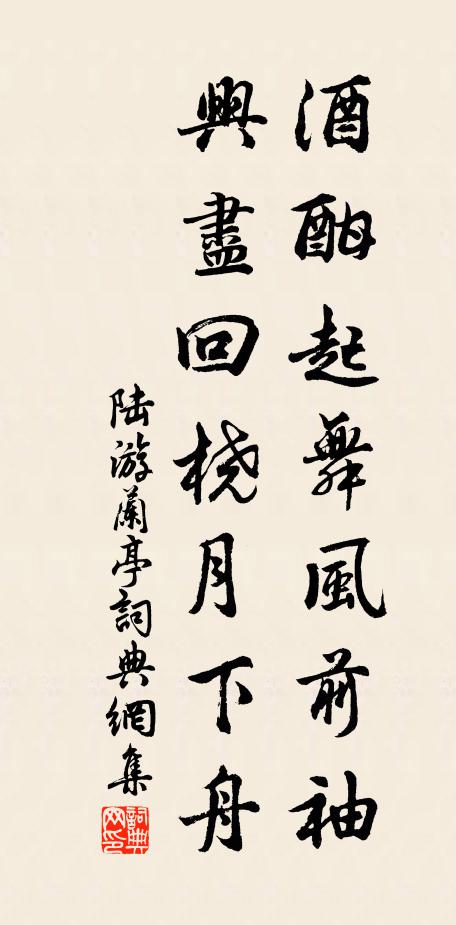 酒酣起舞風前袖
興盡回桡月下舟
陆游蘭亭詞典網集
詞典網印